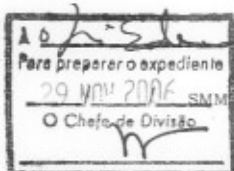 A O
Para preparar o expediente
29 NOV 2006 SMM
O Chefe de Divisão